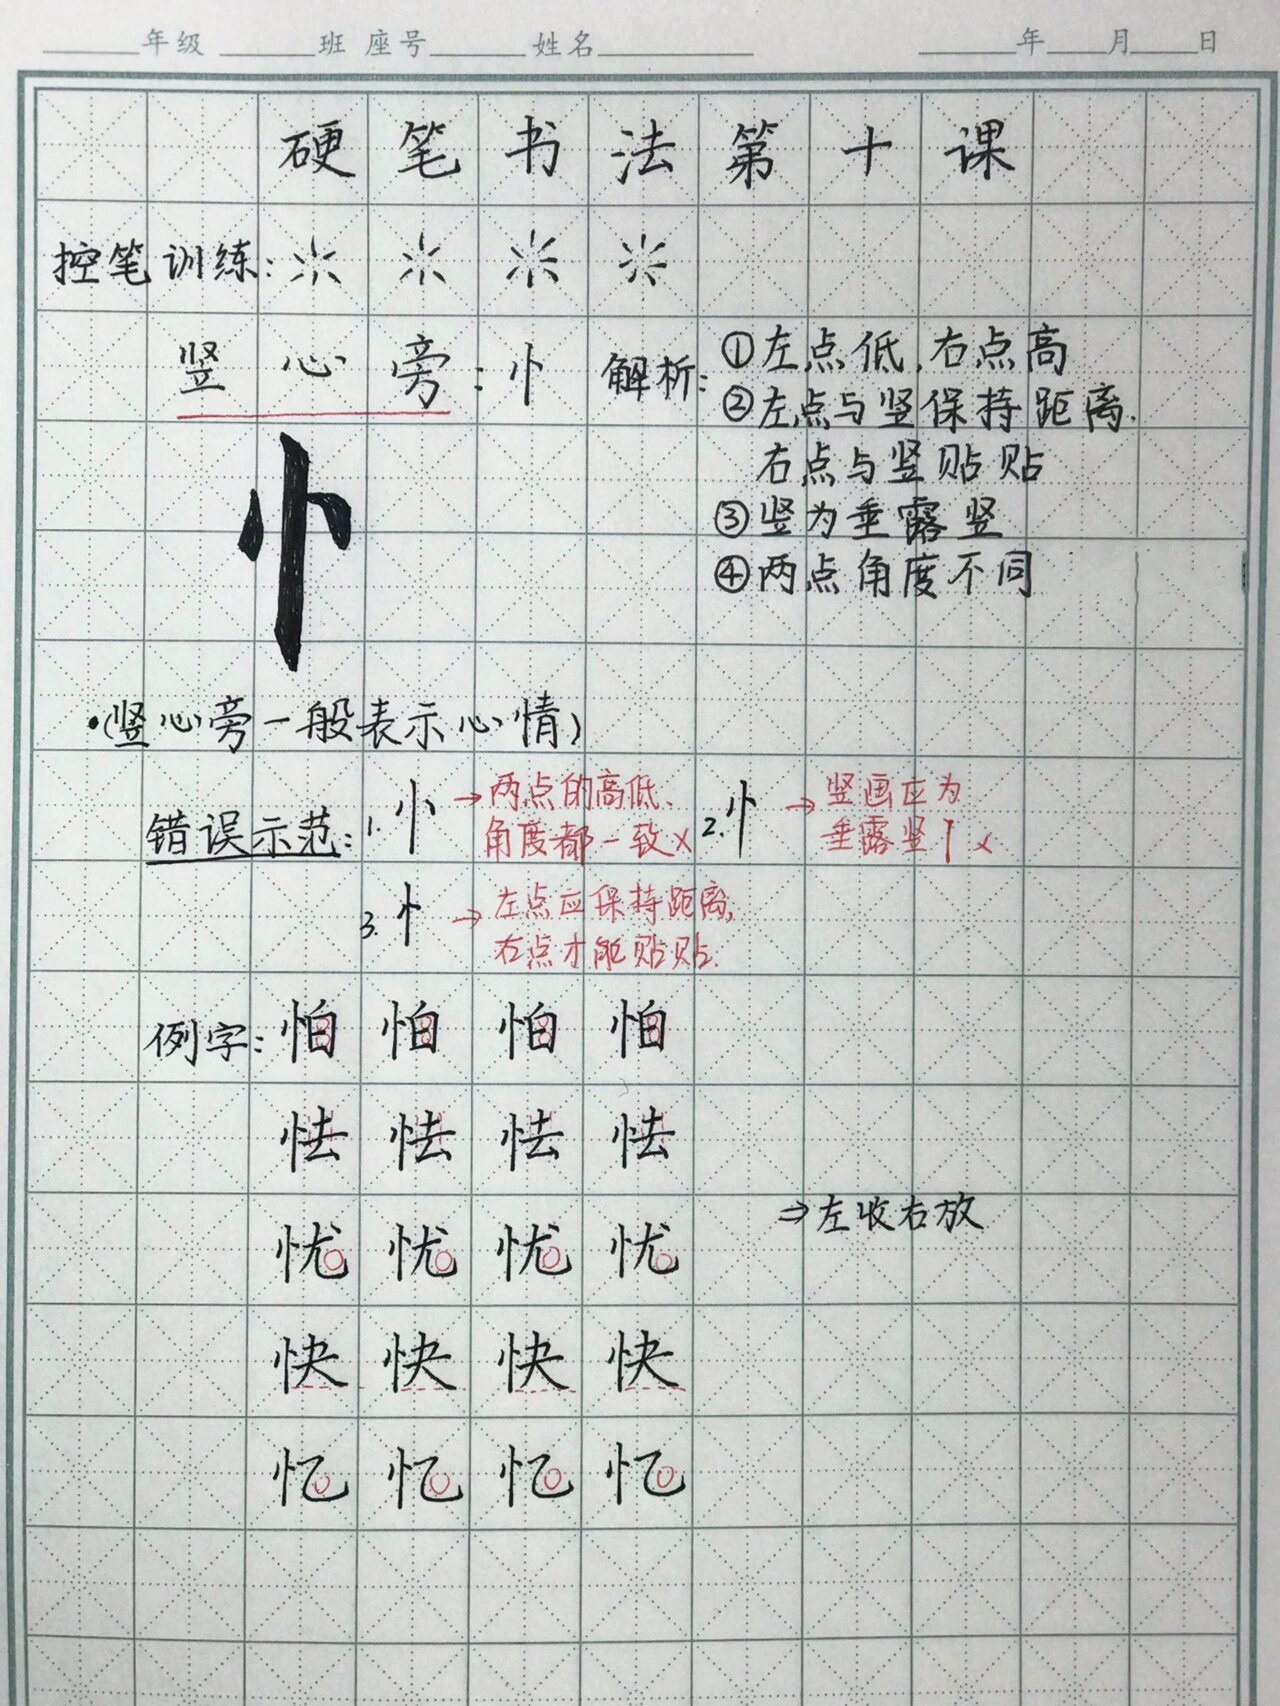 年级 班 座号 姓名 年 月 日
硬笔书法第十课
控笔训练:
竖心旁:忄 解析:
①左点低,右点高
②左点与竖保持距离.
右点与竖贴贴
③竖为垂露竖
④两点角度不同
忄
·(竖心旁一般表示心情)
错误示范:
1. 忄→两点的高低、
角度都一致×
2. 忄→竖画应为
垂露竖丨×
3. 忄→左点应保持距离,
右点才能贴贴.
例字:怕怕怕怕
怯怯怯怯
忧忧忧忧
⇒左收右放
快快快快
忆忆忆忆